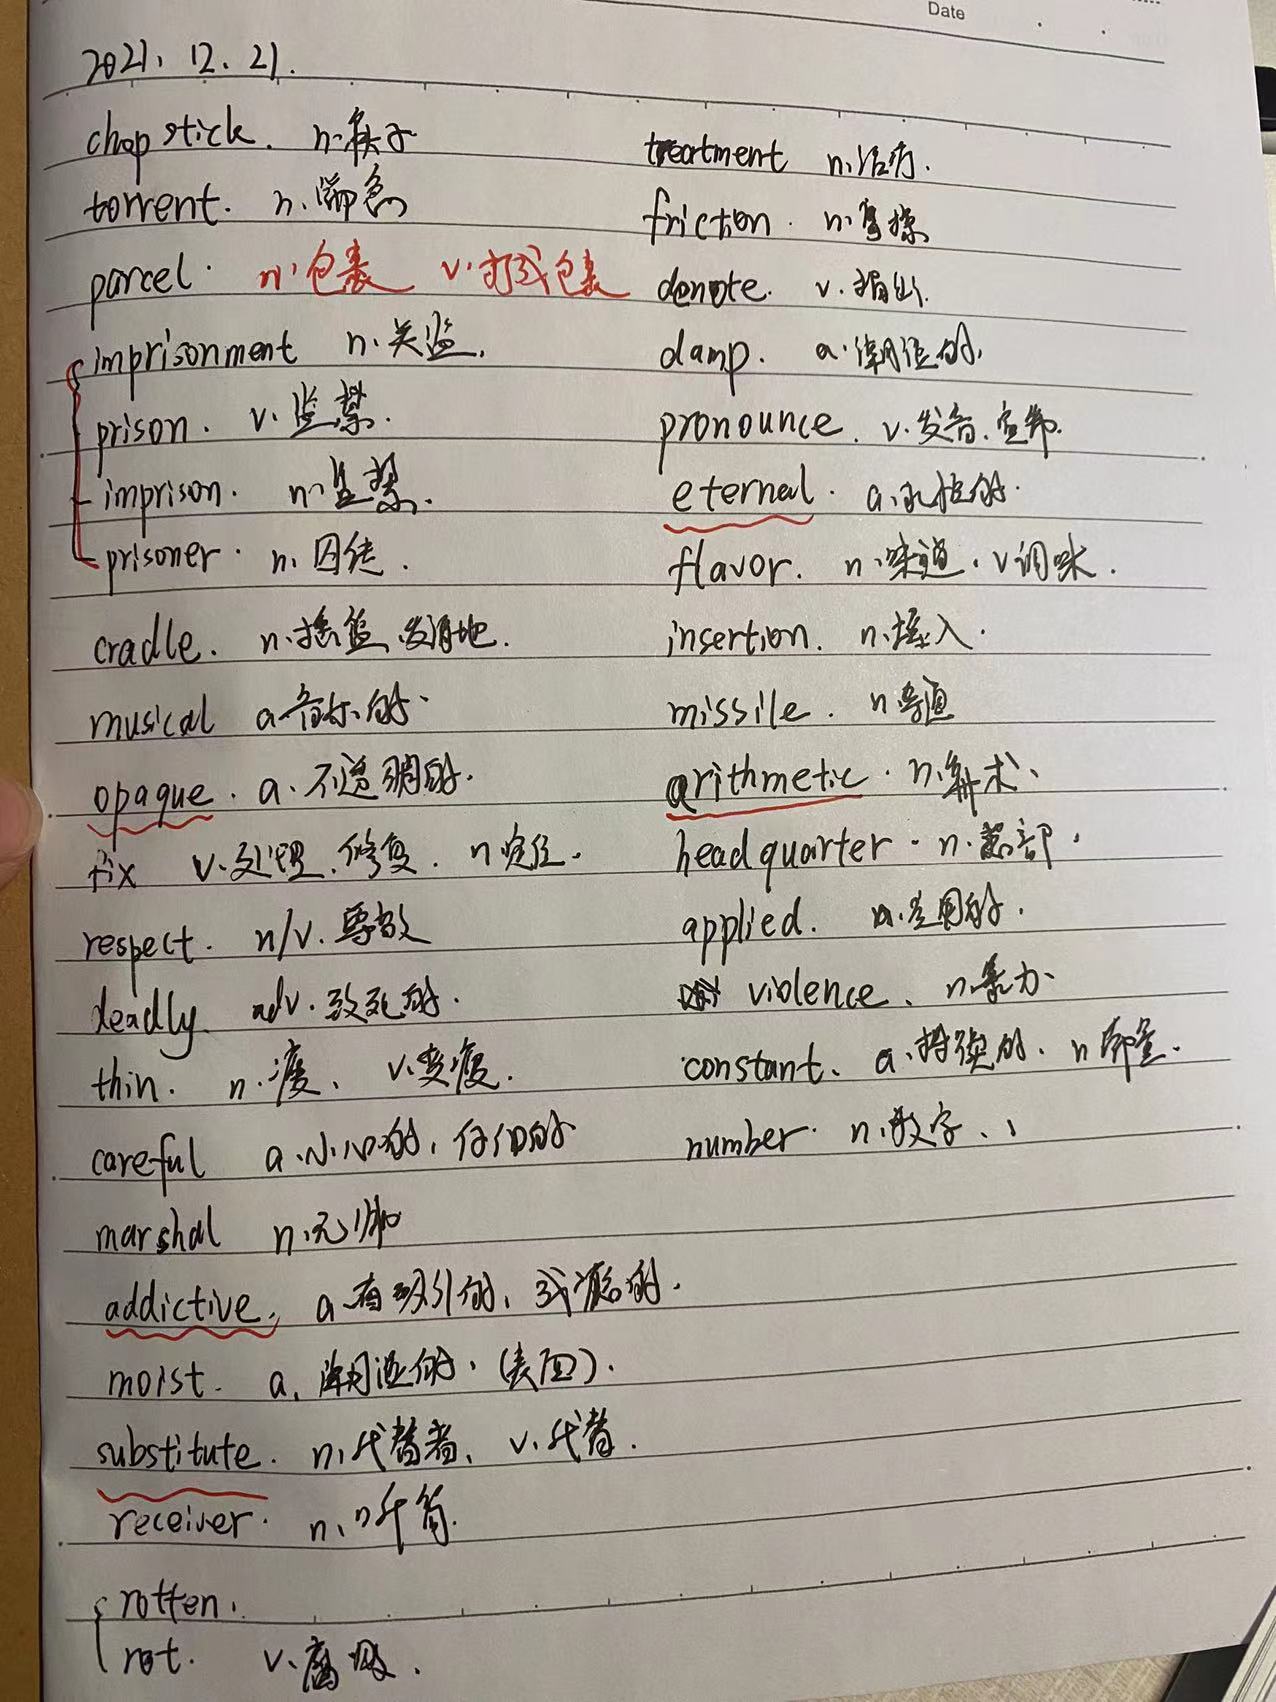 Date
2021.12.21.
chopstick. n.筷子
torrent. n.湍急
parcel. n.包裹 v.打成包裹
imprisonment n.关监.
prison. v.监禁.
imprison. n.监禁.
prisoner. n.囚徒.
cradle. n.摇篮、发源地.
musical a.音乐的.
opaque. a.不透明的.
fix v.处理、修复. n.定位.
respect. n/v.尊敬
deadly. adv.致死的.
thin. n.瘦、 v.变瘦.
careful a.小心的,仔细的
marshal n.元帅
addictive, a.有吸引的,成瘾的.
moist. a.潮湿的.(表面).
substitute. n.代替者、v.代替.
receiver. n.听筒.
rotten.
rot. v.腐败.
treatment n.治疗.
friction. n.摩擦
denote. v.指出.
damp. a.潮湿的,
pronounce. v.发音、宣布.
eternal. a.永恒的.
flavor. n.味道.v调味.
insertion. n.插入.
missile. n导弹
arithmetic. n.算术、
headquarter. n.总部.
applied. a.应用的.
violence、n.暴力.
constant、a.持续的. n常量.
number. n.数字、